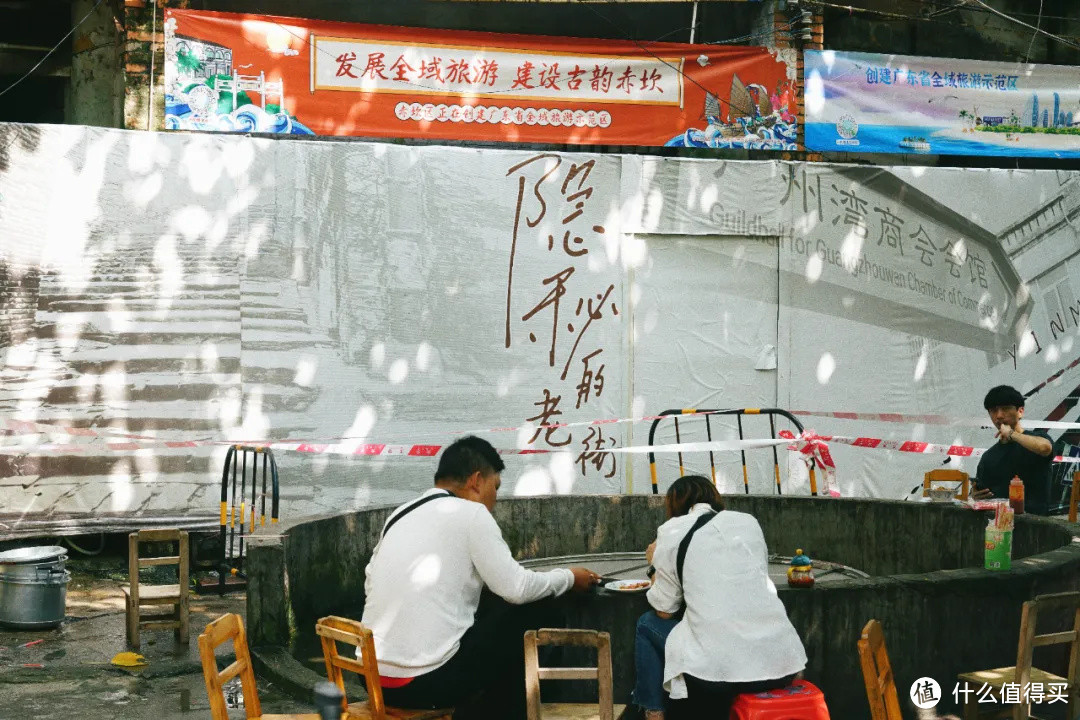 发展全域旅游 建设古韵赤坎
赤坎区正在创建广东省全域旅游示范区
创建广东省全域旅游示范区
州湾商会会馆
Guildhall for Guangzhouwan Chamber of Comm
隐
秘
的
老
街
YINM
值 什么值得买